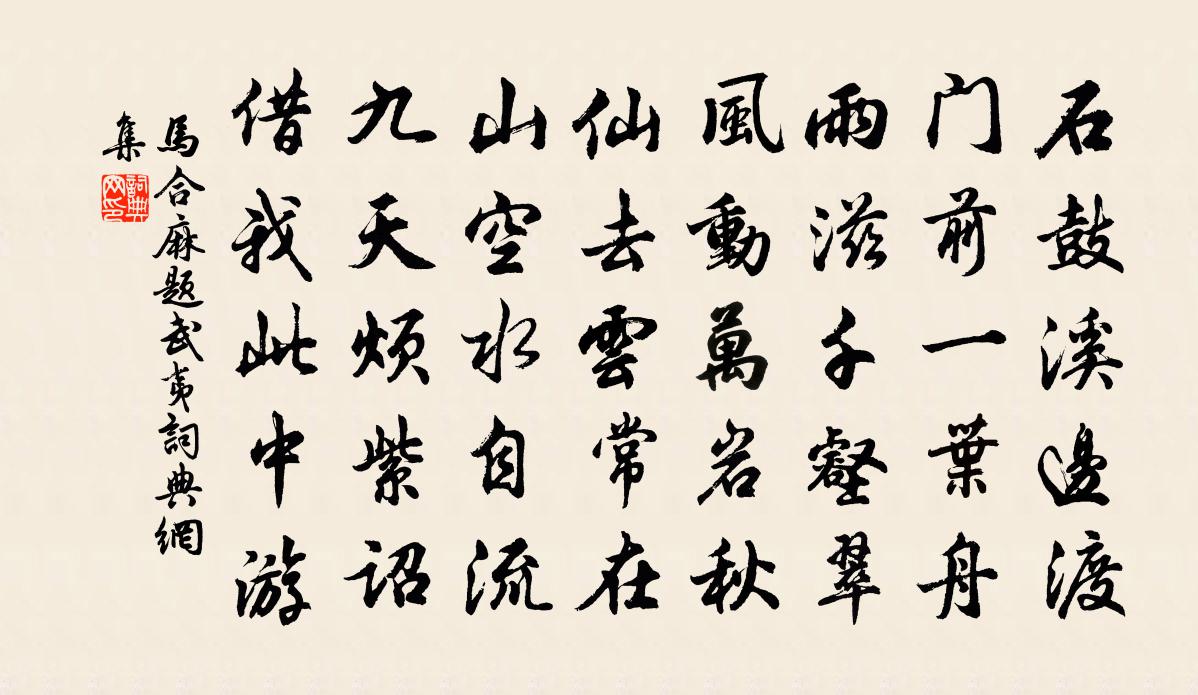 石鼓溪邊渡
门前一葉舟
雨滋千壑翠
風動萬岩秋
仙去雲常在
山空水自流
九天煩紫詔
借我此中游
馬合麻題武夷詞典網
集
詞典網印